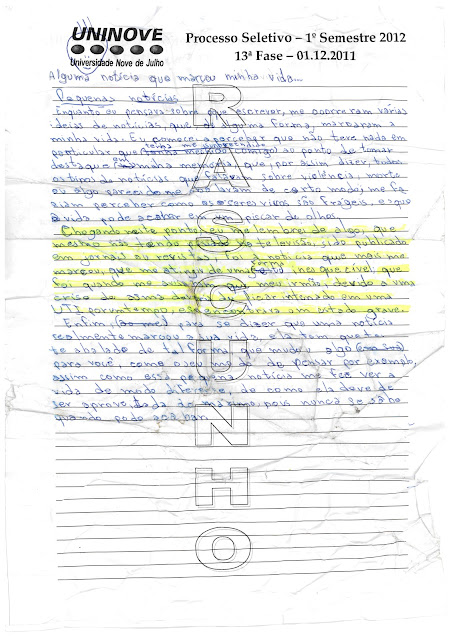 UNINOVE
Universidade Nove de Julho
Processo Seletivo – 1º Semestre 2012
13ª Fase – 01.12.2011
Alguma notícia que marcou minha vida...
Pequenas notícias
Enquanto eu pensava sobre o que escrever, me ocorreram várias
ideias de notícias, que de alguma forma, marcaram
minha vida. Eu comecei a perceber que não teve nada em
particular que
tenha me surpreendido
(tenha mexido comigo) ao ponto de tomar
destaque em minha memória, que por assim dizer, todos
os tipos de notícias que falavam sobre violência, morte
ou algo parecido me de certo modo, me fa
ziam perceber como os seres vivos são frágeis, e que
a vida pode acabar em um piscar de olhos.
Chegando neste ponto, eu me lembrei de algo, que
mesmo não tendo televisão, sido publicado
em jornal ou revistas, foi a notícia que mais me
marcou, que me atingiu de uma forma inesquecível, que
foi quando me meu irmão, devido a uma
crise de asma ficar internado em uma
UTI por um tempo, encontrava em estado grave.
Enfim, para se dizer que uma notícia
realmente marcou a sua vida, ela tem que
te abalado de tal forma que mude algo
para você, como o seu modo de pensar por exemplo,
assim como essa pequena notícia me fez ver a
vida de modo diferente, de como ela deve de
ser aproveitada ao máximo pois nunca se sabe
quando pode acabar.
RASCUNHO